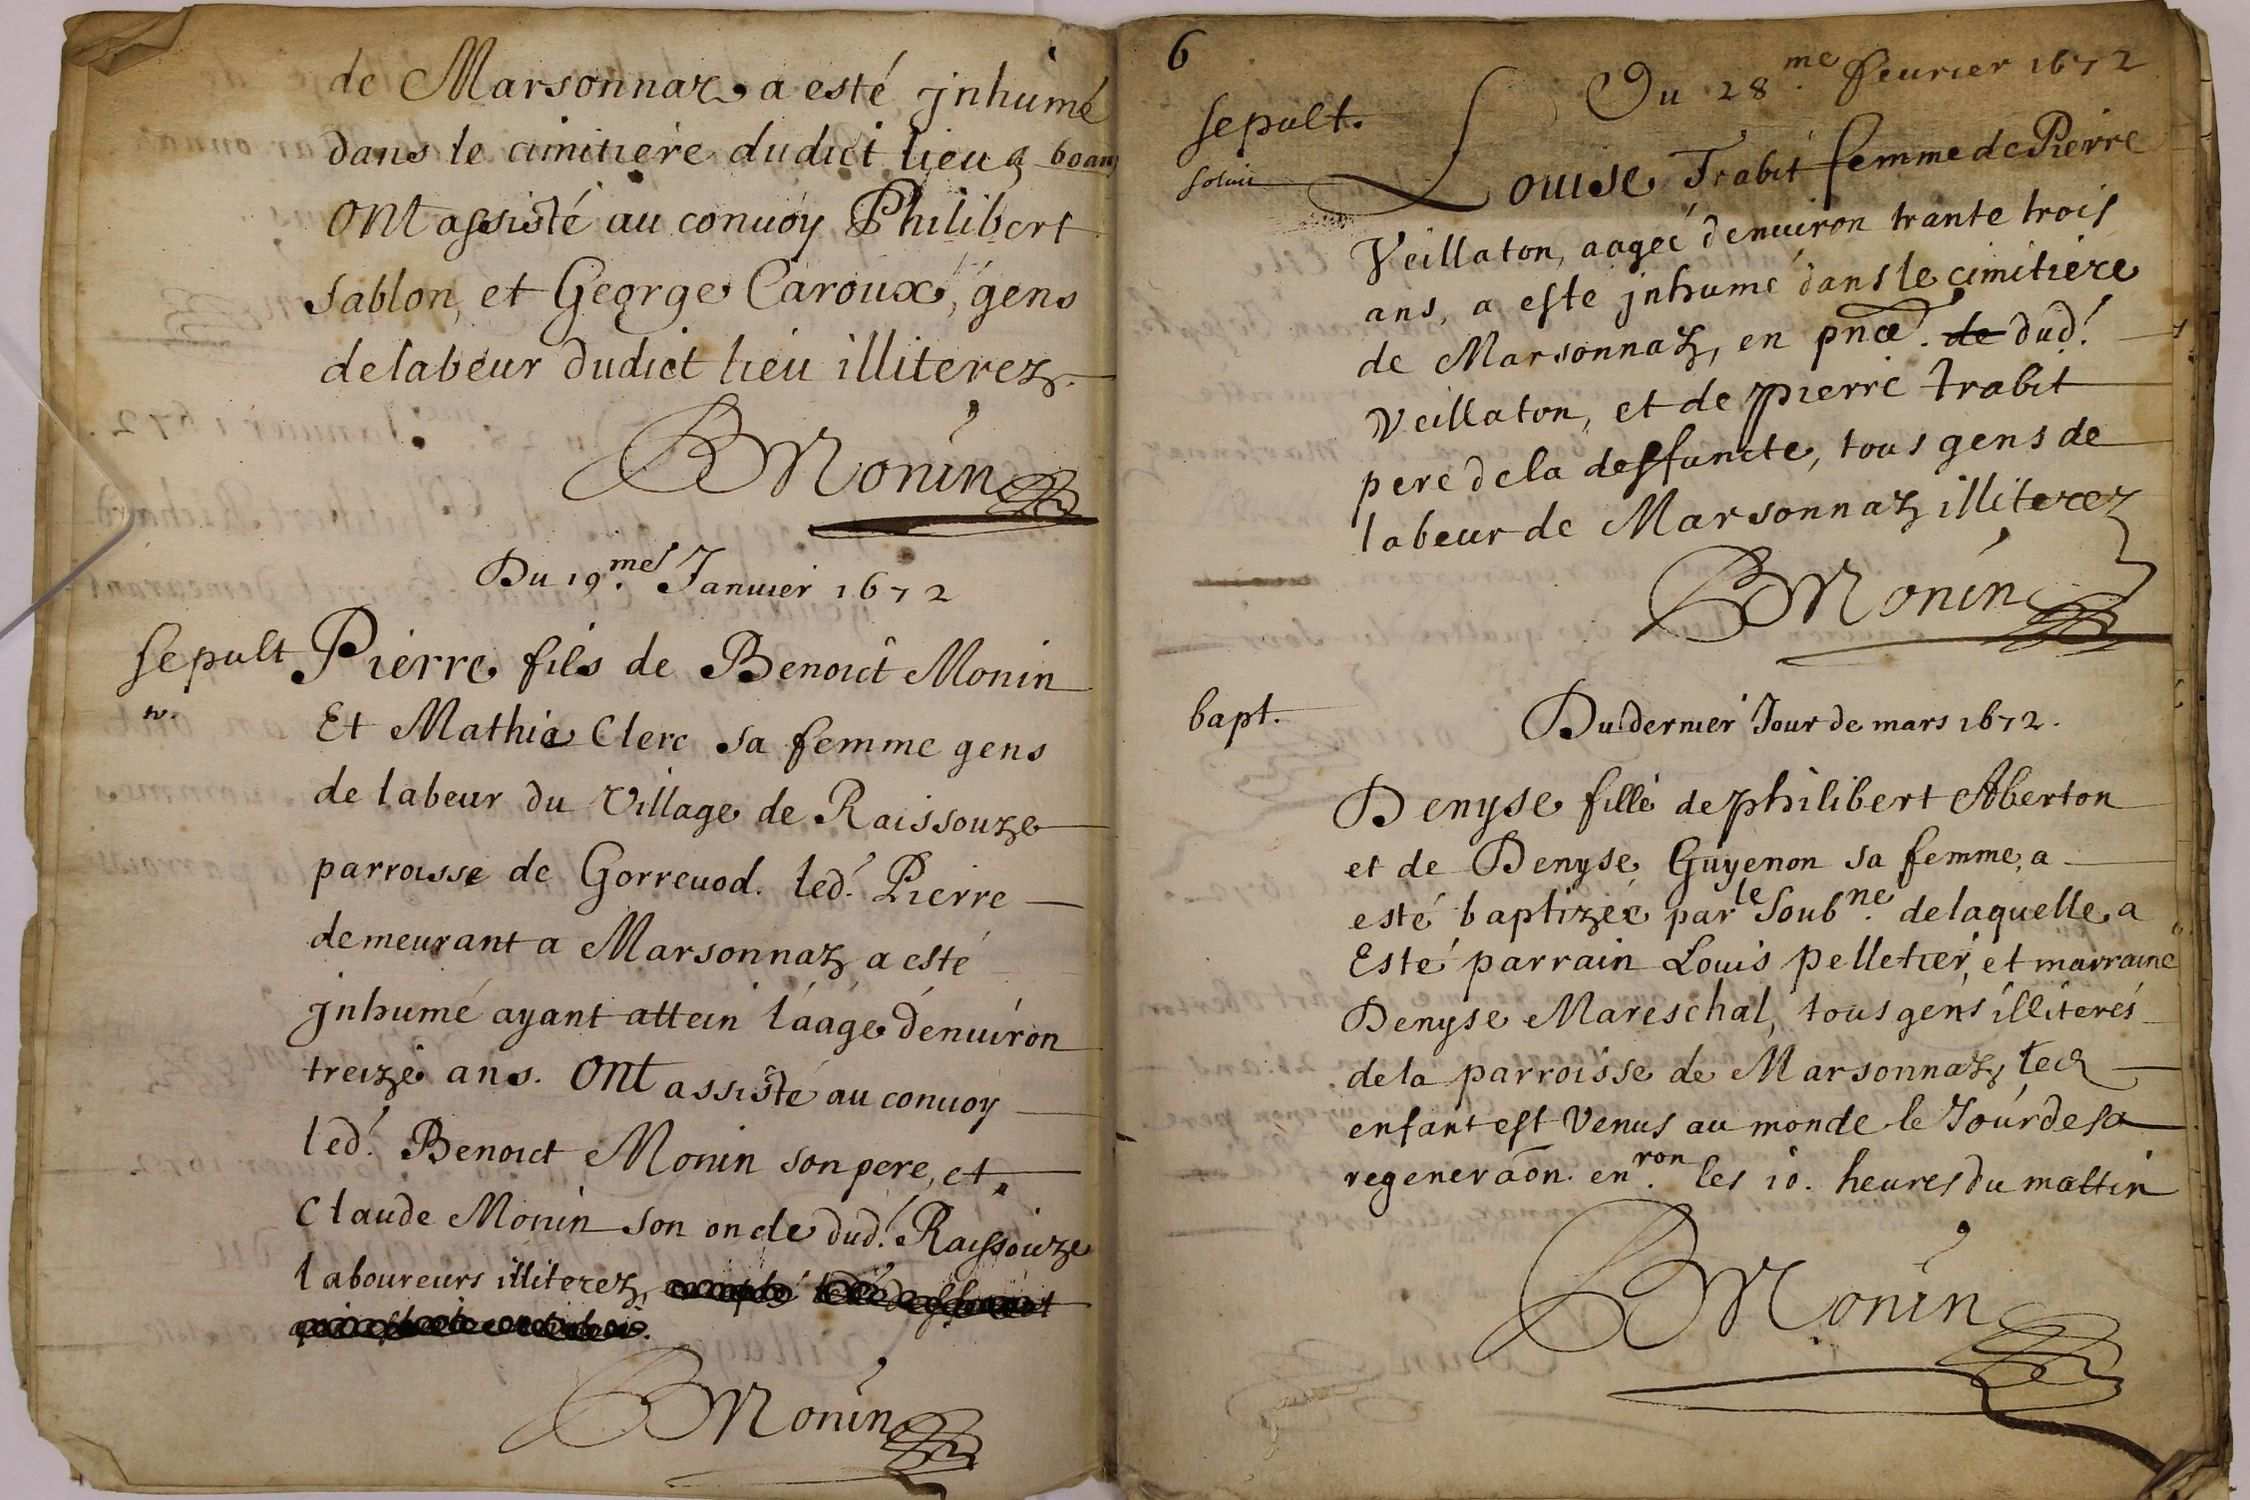 de Marsonnaz a esté jnhumé
dans le cimitiere dudict lieu 60 ans
Ont assisté au conuoy Philibert
Sablon, et George Caroux, gens
de labeur dudict lieu illiterez.
BMonin
Du 19.me Januier 1672
sepult Pierre fils de Benoict Monin
Et Mathie Clerc sa femme gens
de labeur du Village de Raissouze
parroisse de Gorreuod. led. Pierre
demeurant a Marsonnaz a esté
jnhumé ayant attein l'áage d'enuiron
treize ans. Ont assisté au conuoy
led. Benoict Monin son pere, et
Claude Monin son oncle dud. Raissouze
laboureurs illiterez,
BMonin
6
Du 28.me feurier 1672
sepult.
Louise Trabit femme de Pierre
Veillaton, aagée d'enuiron trante trois
ans, a este jnhumé dans le cimitiere
de Marsonnaz, en pnce. de dud.
Veillaton, et de pierre trabit
pere de la deffuncte, tous gens de
labeur de Marsonnaz illiterez
BMonin
bapt. Du dernier Jour de mars 1672.
Denyse fille de philibert Aberton
et de Denyse Guyenon sa femme, a
esté baptizée par le Soub.ne de laquelle a
Esté parrain Louis pelletier, et marraine
Denyse Mareschal, tous gens illiterés
de la parroisse de Marsonnaz,
enfant est Venus au monde le Jour de sa
regeneraõn. en.ron les 10. heures du mattin
BMonin